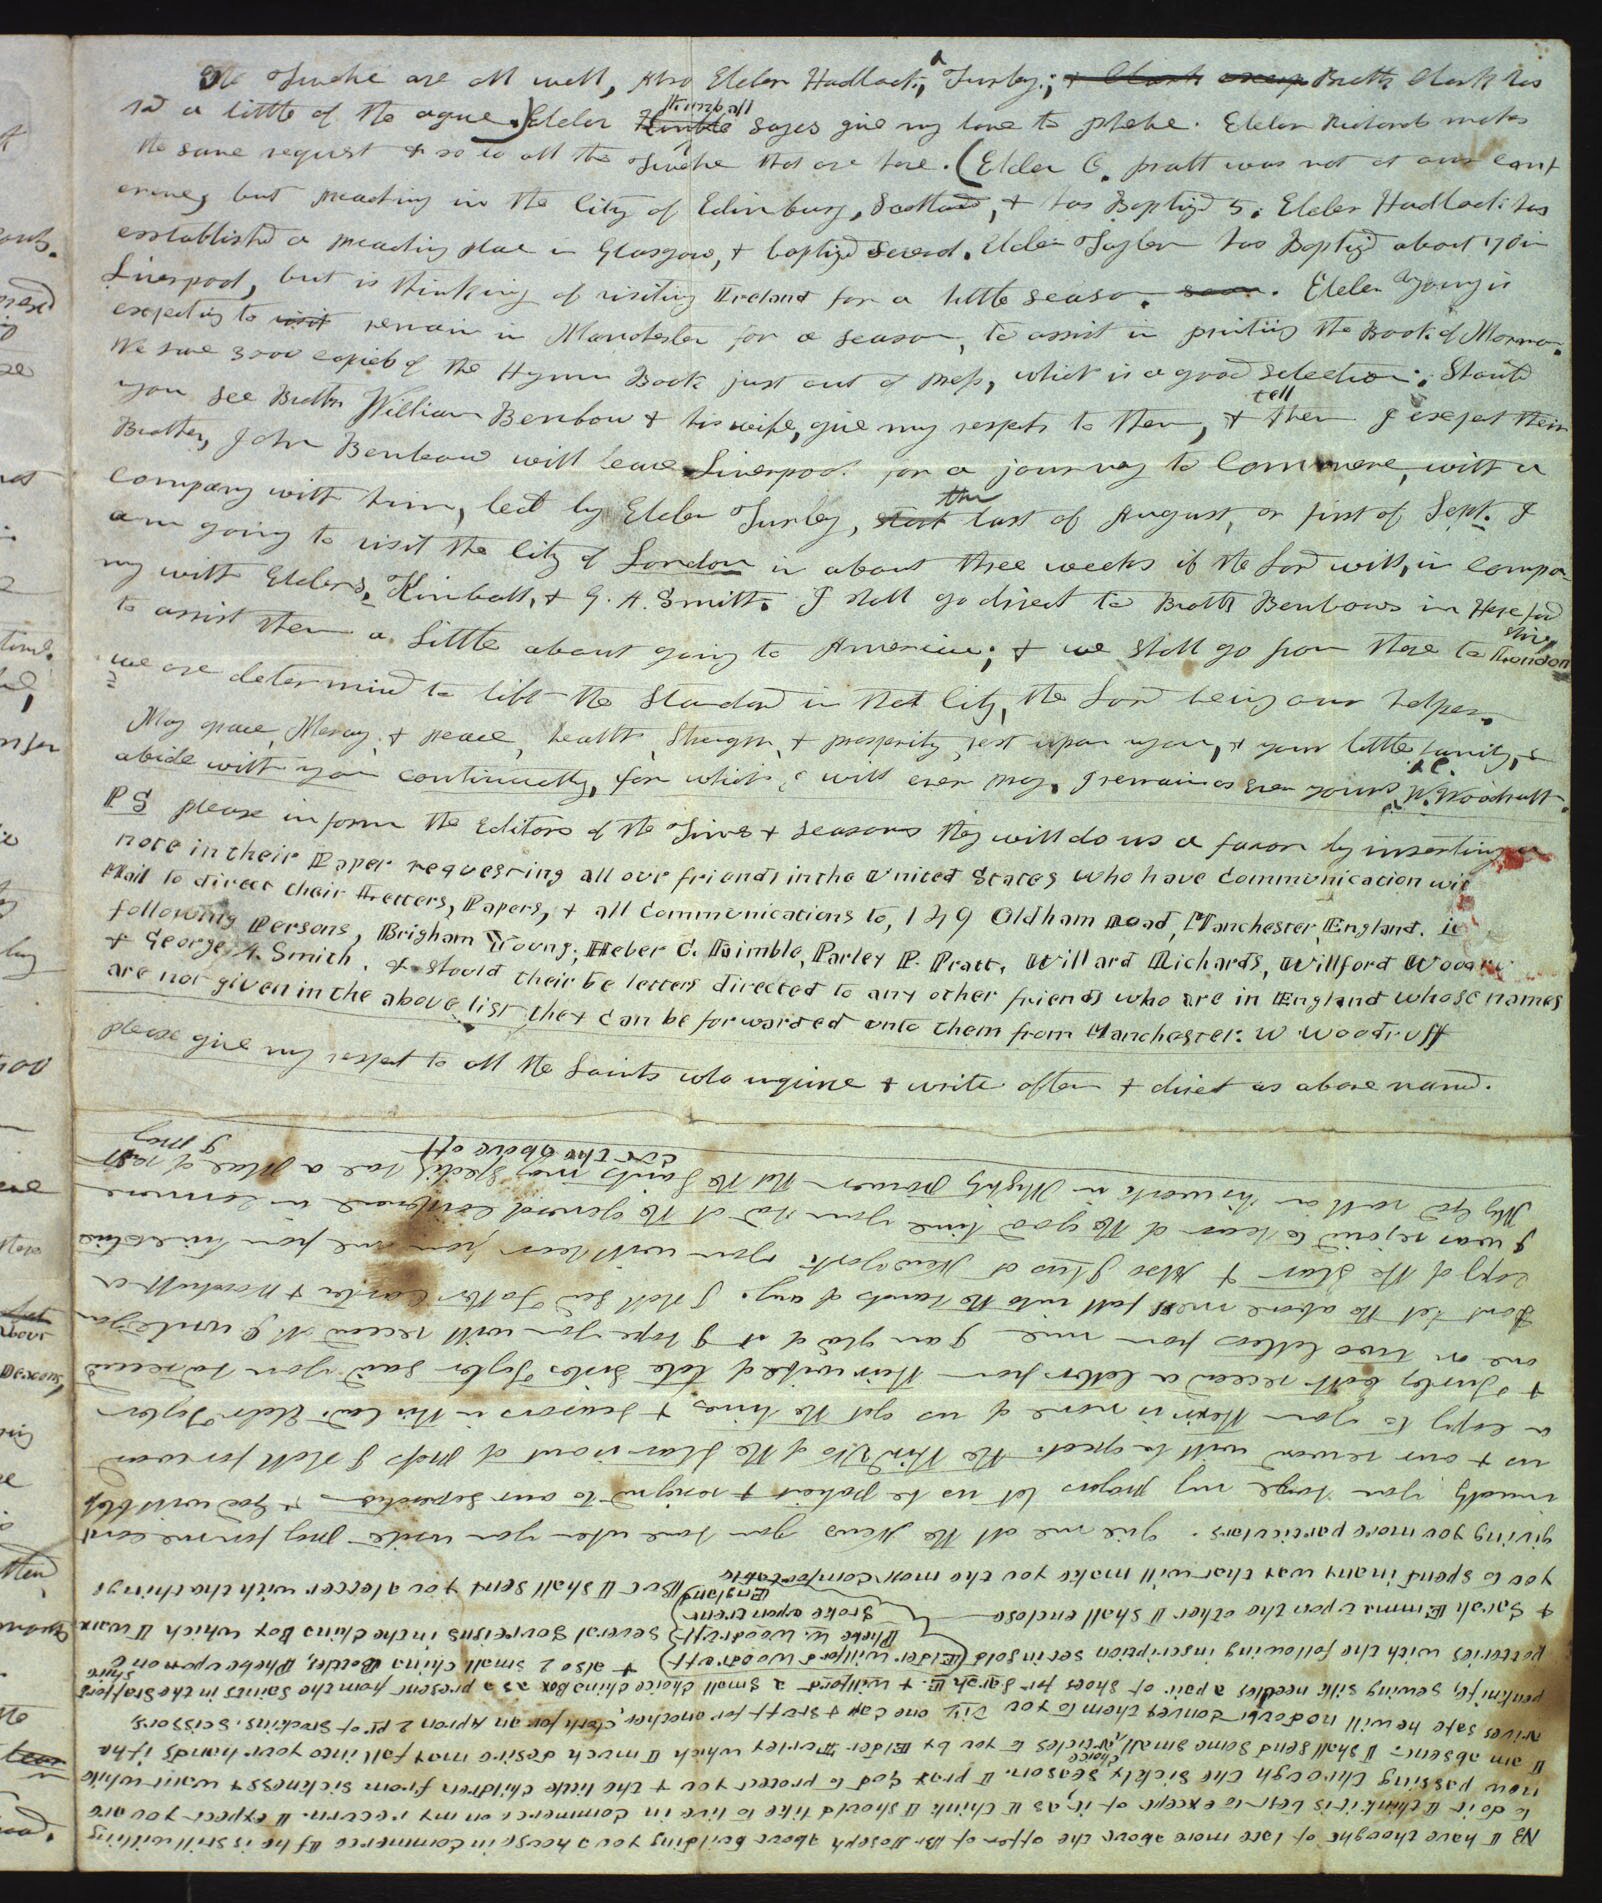 The Twelve are all well, Also Elder Hadlock, & Turley; & Clark except Brother Clark has
had a little of the ague.) Elder Kimble Kimball sayes give my love to phebe. Elder Richards makes
the same request & so do all the Twelve that are here. (Elder O. pratt was not at our conf
erence, but preaching in the City of Edinburg, Scotland, & has Baptized 5. Elder Hadlock has
established a preaching place in Glasgow, & baptized several. Elder Taylor has Baptized about 170 in
Liverpool, but is thinking of visiting Ireland for a little season. soon. Elder Young is
expecting to visit remain in Manchester for a season, to assist in printing the Book of Mormon.
We have 3000 copies of the Hymn Book just out of press, which is a good selection. Should
you see Brother William Benbow & his wife, give my respects to them, & tell them I expect their
Brother, John Benbow will leave Liverpool for a journey to Commerce, with a
company with him, led by Elder Turley, start the last of August, or first of Sept. I
am going to visit the City of London in about three weeks if the Lord will, in compa-
ny with Elders, Kimball, & G. A. Smith. I shall go direct to Brother Benbows in Hereford
shire
to assist them a little about going to America; & we shall go from there to London
we are determined to lift the Standard in that City, the Lord being our helper.
May grace, Mercy, & peace, health, strength, & prosperity, rest upon you, & your little family, &
abide with you continually, for which I will ever pray. I remain as ever yours &c. W. Woodruff.
PS please inform the Editors of the Times & Seasons they will do us a favor by inserting a
note in their Paper requesting all our friends in the United States who have communication wit
Mail to direct their Letters, Papers, & all communications to, 149 Oldham Road, Manchester, England. to
following Persons, Brigham Young, Heber C. Kimble, Parley P. Pratt, Willard Richards, Willford Woodru
& George A. Smith. & should their be letters directed to any other friends who are in England whose names
are not given in the above list they can be forwarded unto them from Manchester. W Woodruff
please give my respect to all the Saints who inquire & write often & direct as above named.
NB I have thought of late more about the offer of Br Joseph about building you a house in Commerce If he is still willing
to do it I think it is best to except of it, as I think I should like to live in Commerce on my return. I expect you are
now passing through the sickly season. I pray God to protect you & the little children from sickness & want while
I am absent. I shall send some small choice articles to you by Elder Turley which I much desire may fall into your hands if he
arives safe he will no doubt convey them to you viz one cap & stuff for another, cloth for an apron 2 pr of stockins, scissors,
penknife, sewing silk needles a pair of shoes for Sarah E. & willford a small choice china Box as a present from the Saints in the Stafford
shire
potteries with the following inscription set in gold (Elder Willford Woodruff) & also 2 small china Bottles, Phebe upon one
& Sarah Emma upon the other I shall enclose Phebe W. Woodruff Stoke upon trent England several Sovreigns in the china Box which I want
you to spend in any way that will make you the most comfortable But I shall send you a letter with the things
giving you more particulars. give me all the News you have when you write pray for me cont
inually you have my prayers let us be patient & resigned to our seperation & God will bless
us & our reward will be great. The third No of the Star is out of press I shall forward
a copy to you their is none of us got the times & seasons in this land. Elder Taylor
& Turley both received a letter from their wifes of late Sister Taylor said you had received
one or two letters from me I am glad of it I hope you will receive all I write you
Dont let the above mess fall into the hands of any. I shall send Father Carter & a
copy of the Star & Also I two at New York you will hear from me from time to time
I was rejoiced to hear of the good time you had at the general Conference in Commerce
May God roll on his work in Mighty power that the Saints may speedily have a place of rest
I pray
cut the above off